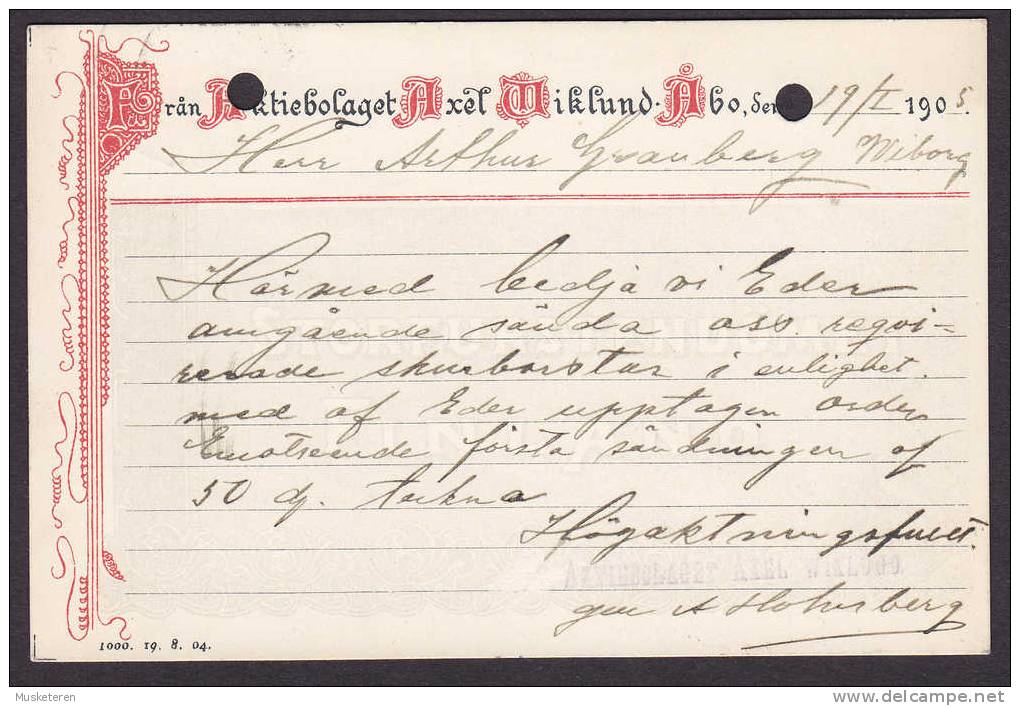 Från Aktiebolaget Axel Wiklund. Åbo, den 19/I 1905.
Herr Arthur Granberg Wiborg
Härmed bedja vi Eder
omgående sända oss reqvi=
rerade skurborstar i enlighet
med af Eder upptagen order
Emotseende första sändningen af
50 dj. tecknа
Högaktningsfullt.
A Holmberg
1000. 19. 8. 04.
Musketeren
delcampe.net